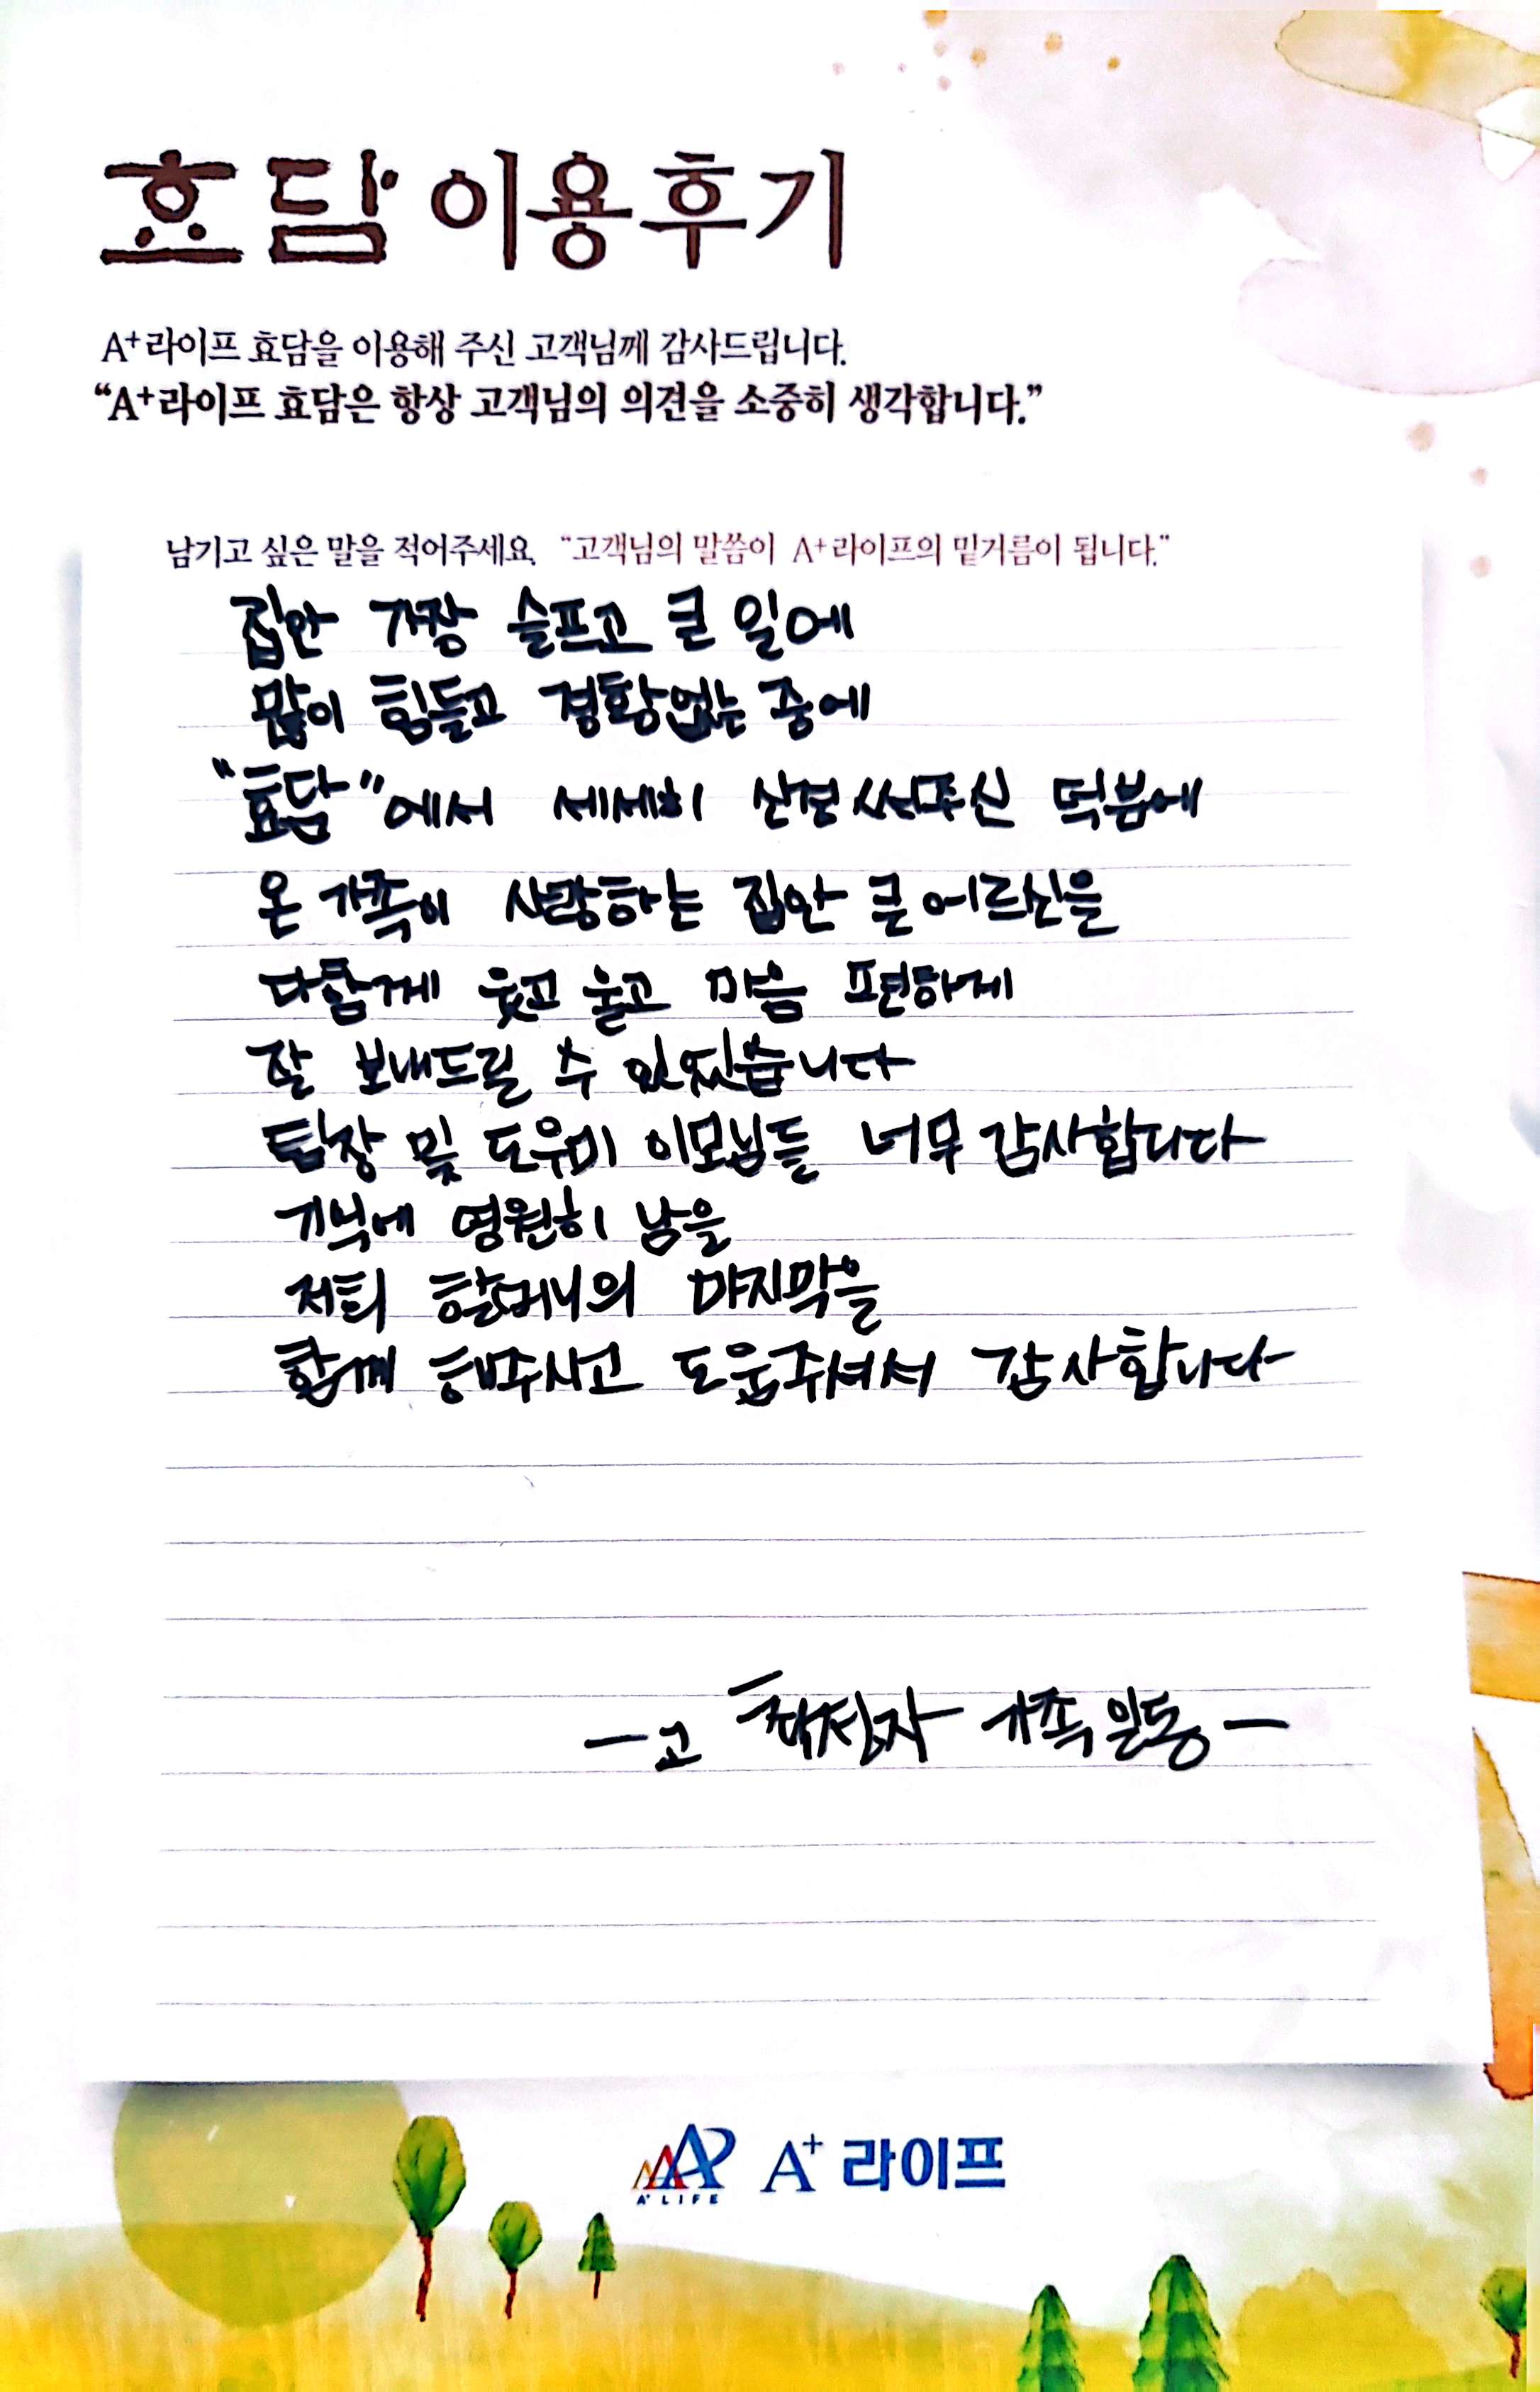 효담 이용후기
A+라이프 효담을 이용해 주신 고객님께 감사드립니다.
“A+라이프 효담은 항상 고객님의 의견을 소중히 생각합니다.”
남기고 싶은 말을 적어주세요. “고객님의 말씀이 A+라이프의 밑거름이 됩니다.”
집안 가장 슬프고 큰 일에
많이 힘들고 경황없는 중에
“효담”에서 세세히 신경써주신 덕분에
온 가족이 사랑하는 집안 큰 어르신을
다함께 웃고 울고 마음 편하게
잘 보내드릴 수 있었습니다
팀장 및 도우미 이모님들 너무 감사합니다
기억에 영원히 남을
저희 할머니의 마지막을
함께 해주시고 도움주셔서 감사합니다
-고 가족일동-
A+ LIFE A+ 라이프